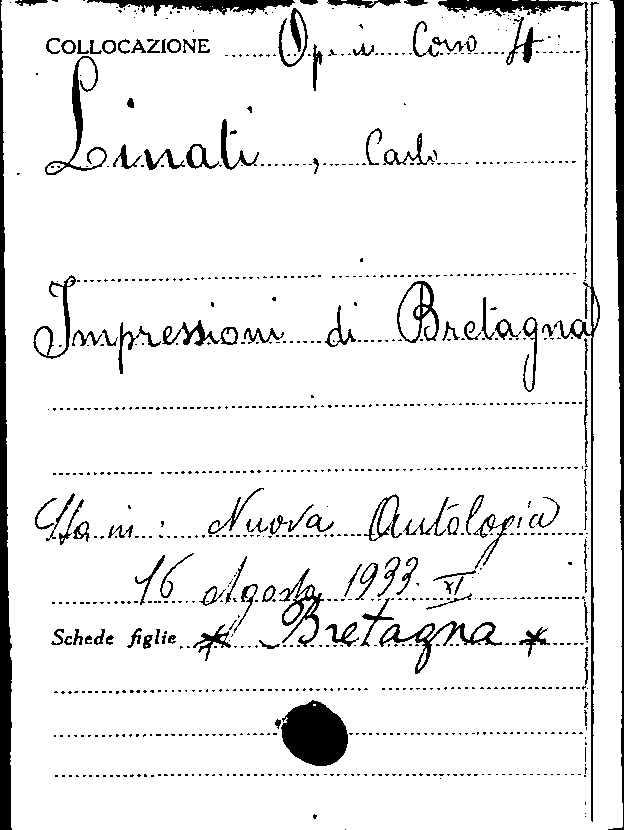 COLLOCAZIONE Op. in Corso
Linati, Carlo
Impressioni di Bretagna
Sta in: Nuova Antologia
16 Agosto 1933. XI
Schede figlie * Bretagna *